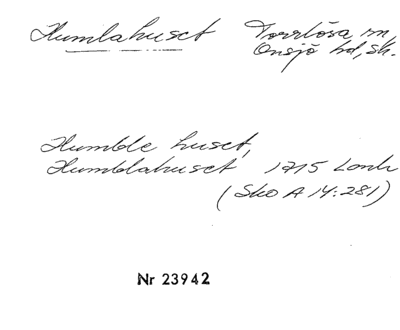 Humlahuset Torrlösa sn,
Onsjö hd, Sk.
Humble huset,
Humblahuset 1715 Lantr
(Sko A 14:281)
Nr 23942